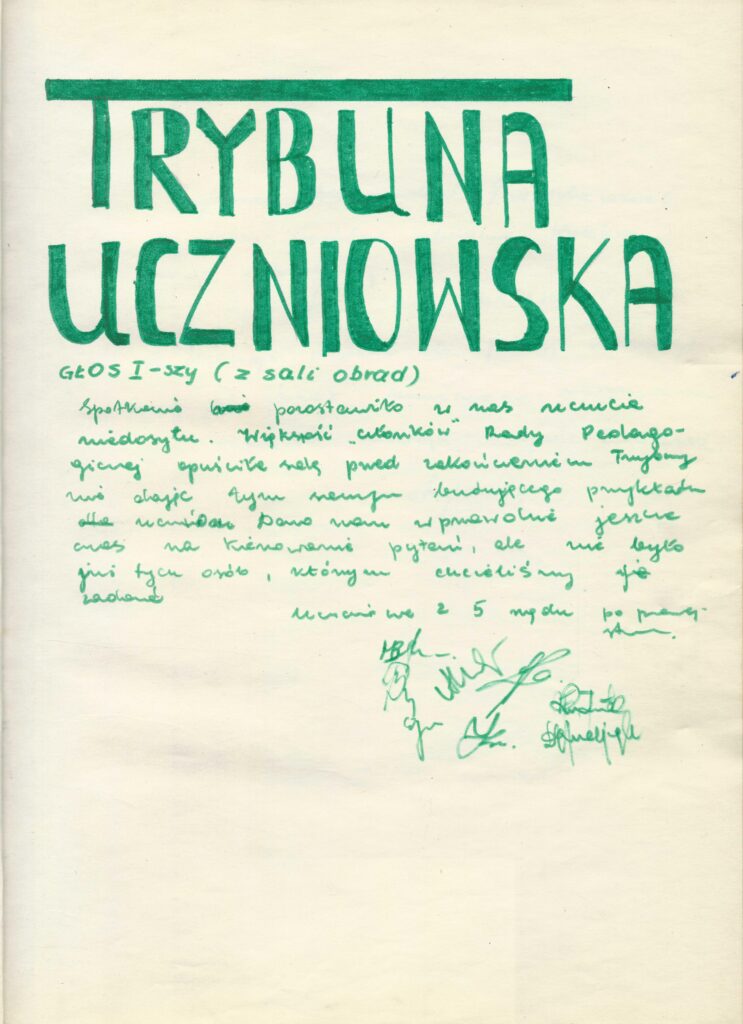 TRYBUNA
UCZNIOWSKA
GŁOS I-szy (z sali obrad)
Spotkanie pozostawiło w nas uczucie
niedosytu. Większość "członków" Rady Pedago-
gicznej opuściła salę przed zakończeniem Trybuny
nie dając tym samym budującego przykładu
dla uczniów. Dano nam wprawdzie jeszcze
czas na kierowanie pytań, ale nie było
już tych osób, którym chcieliśmy je
zadać
uczniowie z 5 rzędu po prawej
stronie.